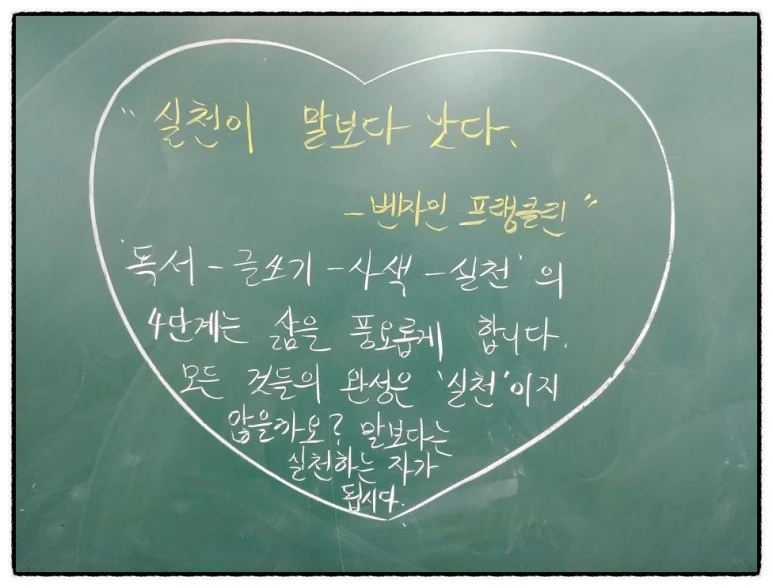 "실천이 말보다 낫다.
- 벤자민 프랭클린"
'독서 - 글쓰기 - 사색 - 실천'의
4단계는 삶을 풍요롭게 합니다.
모든 것들의 완성은 '실천'이지
않을까요? 말보다는
실천하는 자가
됩시다.